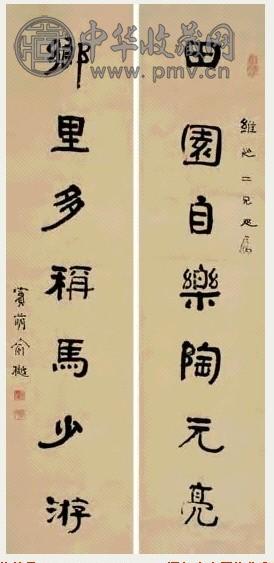 中华收藏网
www.pmv.cn
田園自樂陶元亮
鄉里多稱馬少游
賓萌俞樾